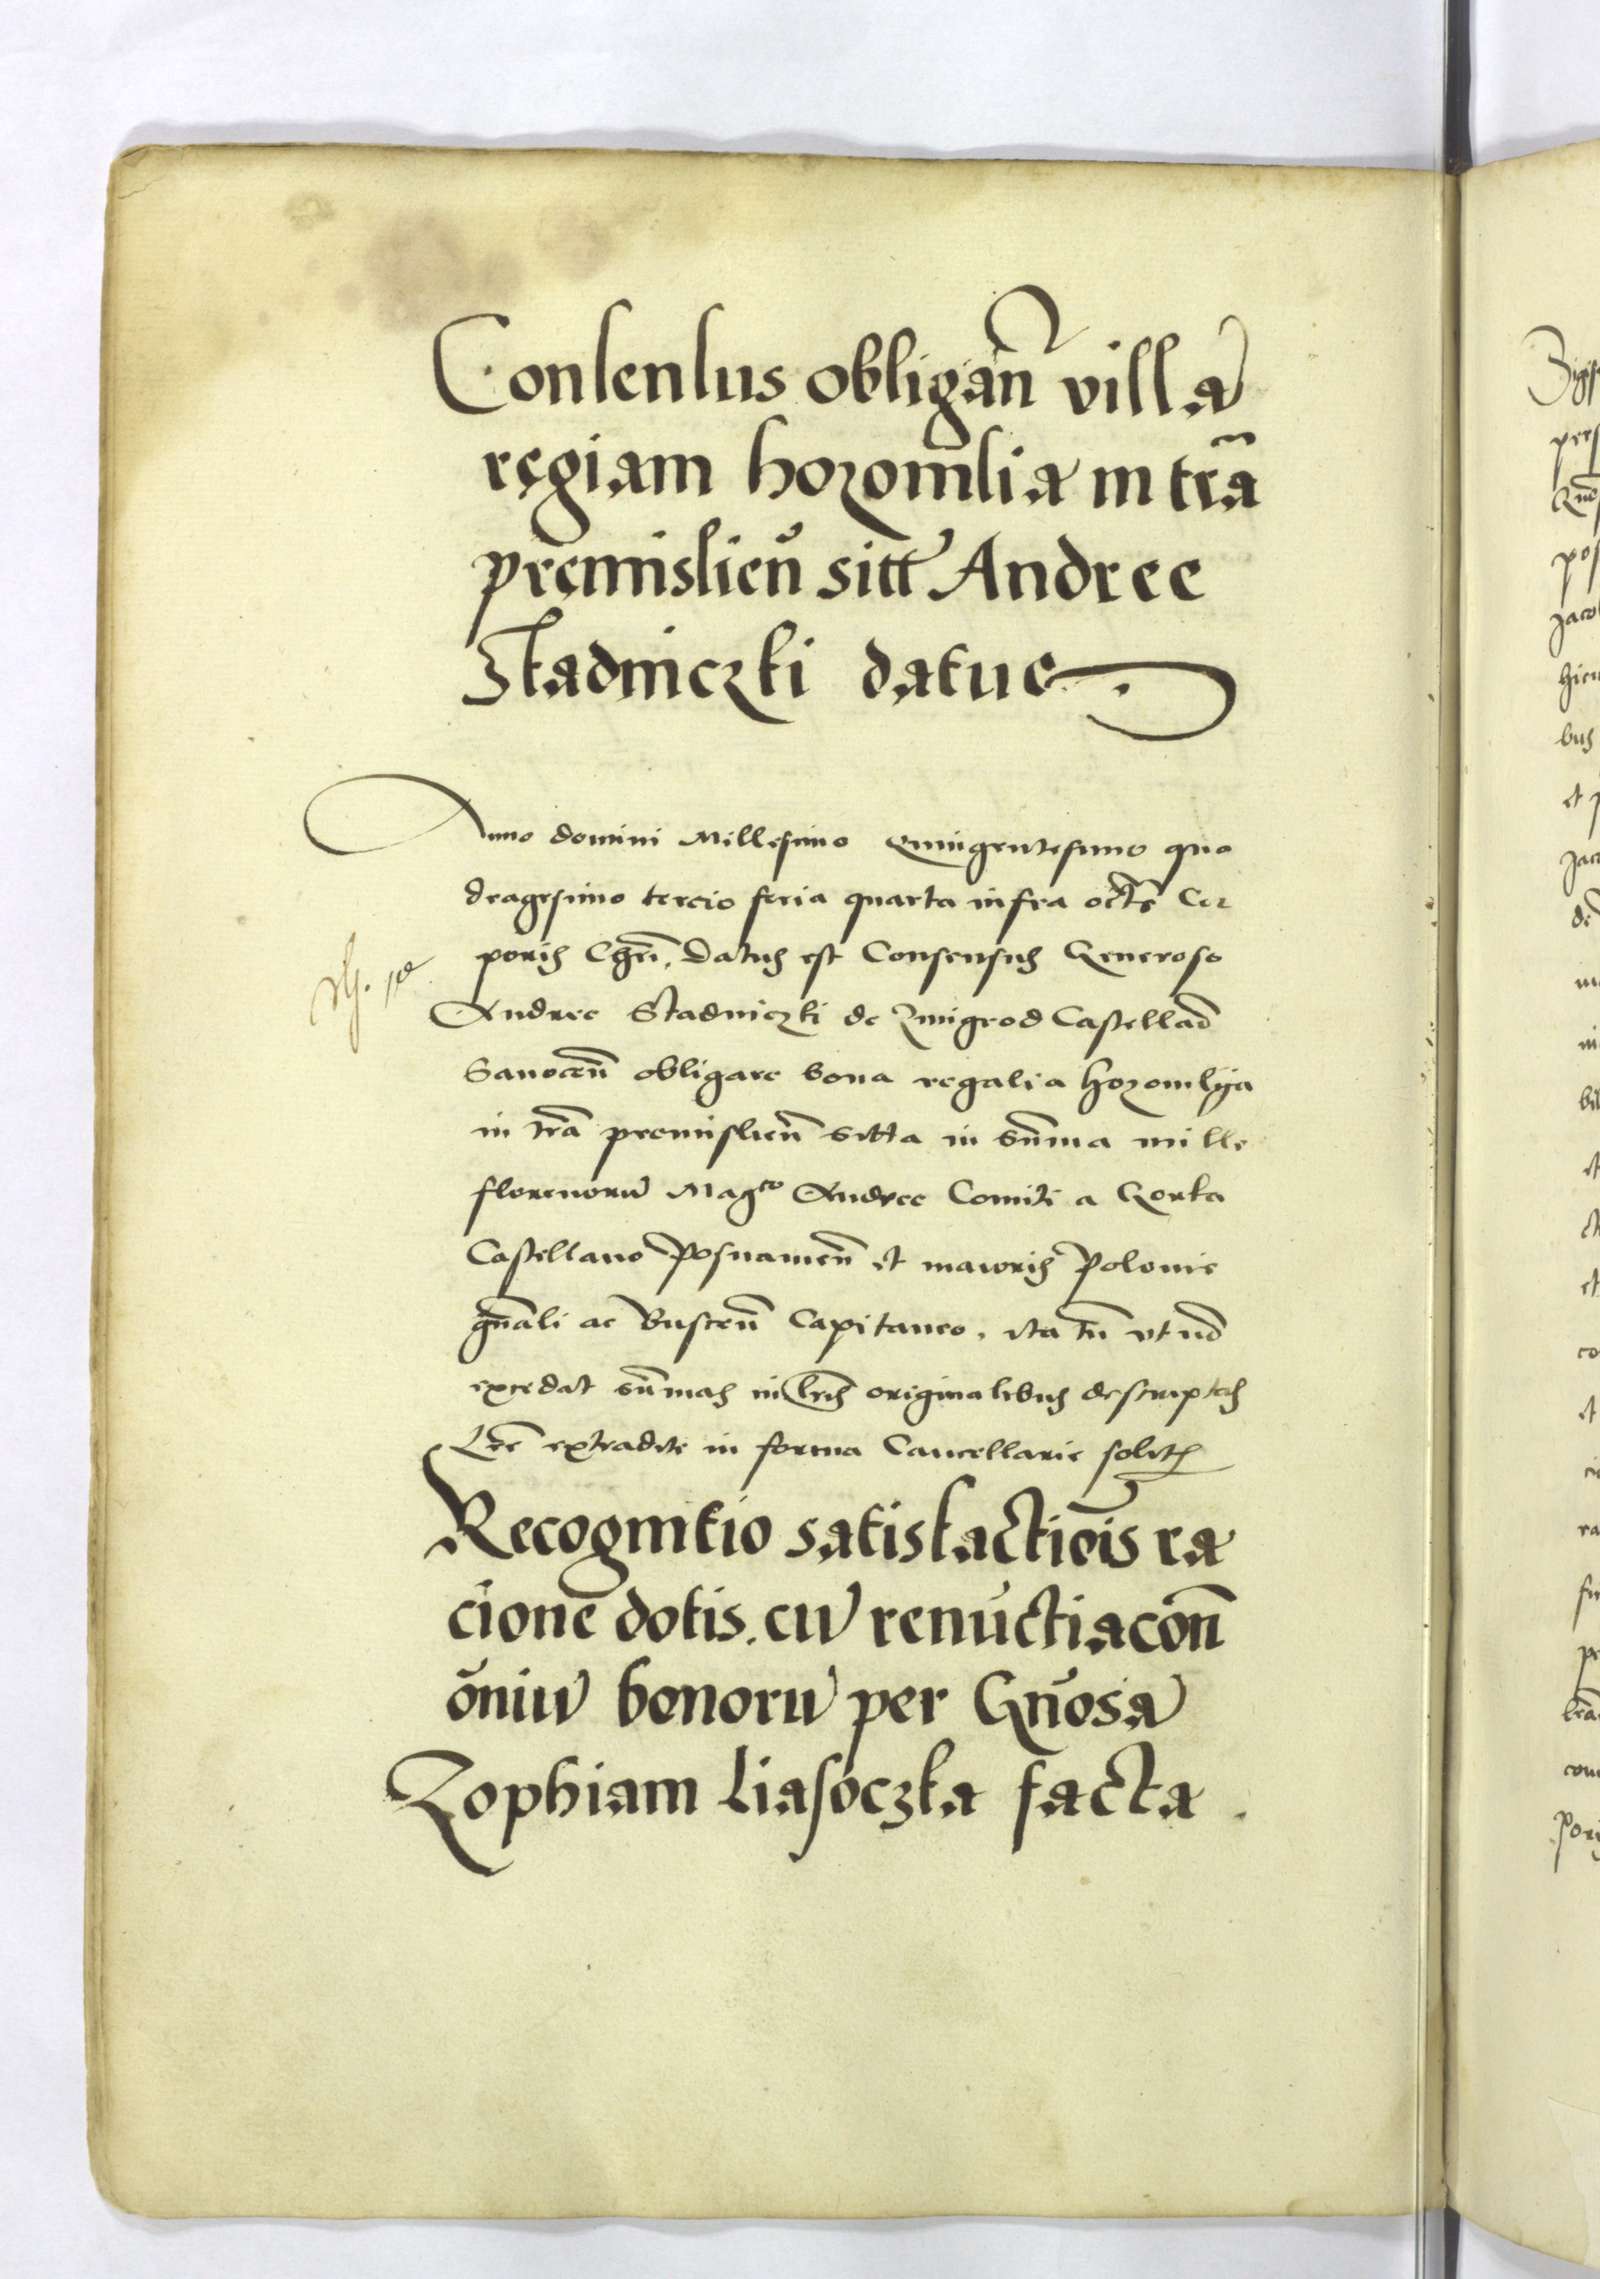 Consensus obligan̄ villā
regiam hozomlia in trā
premislien̄ sitt Andree
Stadniczki datus
Anno domini Millesimo Quingentesimo qua
dragesimo tercio feria quarta infra oct̄s Cor
poris Chr̄i. Datus est Consensus Generoso
Andree Stadniczki de Zmigrod Castellan̄
Sanocen̄ obligare bona regalia hozomlya
in tr̄a premislien̄ sitta in sum̄a mille
florenorū Mag^co Andree Comiti a Gorka
Castellano Posnanien̄ et maioris Polonie
gn̄ali ac Buscen̄ Capitaneo. ita tn̄ ut nō
excedat sum̄as in lr̄is originalibus descriptas
Lr̄e extradite in forma Cancellarie solit
Recognitio satisfactiōis ra
cione dotis. cū renūctiacōn
om̄iū bonorū per Gn̄osā
Zophiam Liasoczka facta.